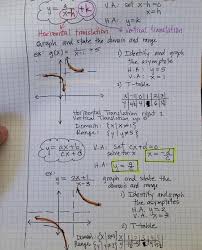 y = a/(x-h) + k
V.A. set x-h=0
x=h
H.A: y=k
Horizontal translation
vertical translation
Graph and state the domain and range
ex: g(x) = 1/(x-1) + 5
1) Identify and graph the asymptote
H.A: y = 5
V.A: x = 1
2) T-table
Horizontal Translation right 1
Vertical Translation up
Domain: {x|x≠1}
Range: {y|y≠5}
y = (ax+b)/(cx+d)
V.A: set cx+d=0
solve for x
x = -d/c
H.A: y = a/c
ex: y = (2x+1)/(x+3)
graph and state the domain and range
1) Identify and graph the asymptotes
H.A: y=2
V.A: x=-3
2) T-table
Domain:
Range: